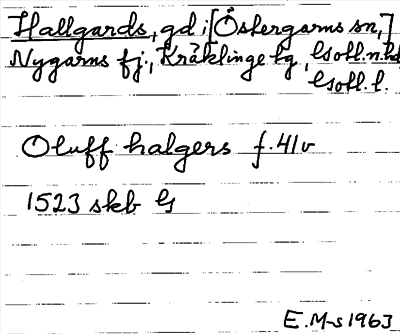 Hallgards, gd i [Östergarns sn,]
Nygarns fj., Kräklinge tg, Gotl. n. hd
Gotl. l.
Oluff halgers f. 41v
1523 skb G
E. M-s 1963